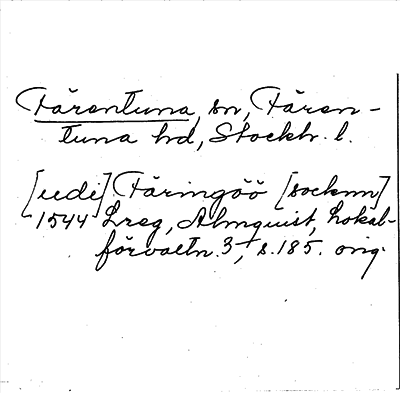 Färentuna, sn, Fären-
tuna hd, Stockh. l.
[udi] Färingöö [socknn]
1544 Lreg, Almquist, Lokal-
förvaltn. 3, s. 185. orig.